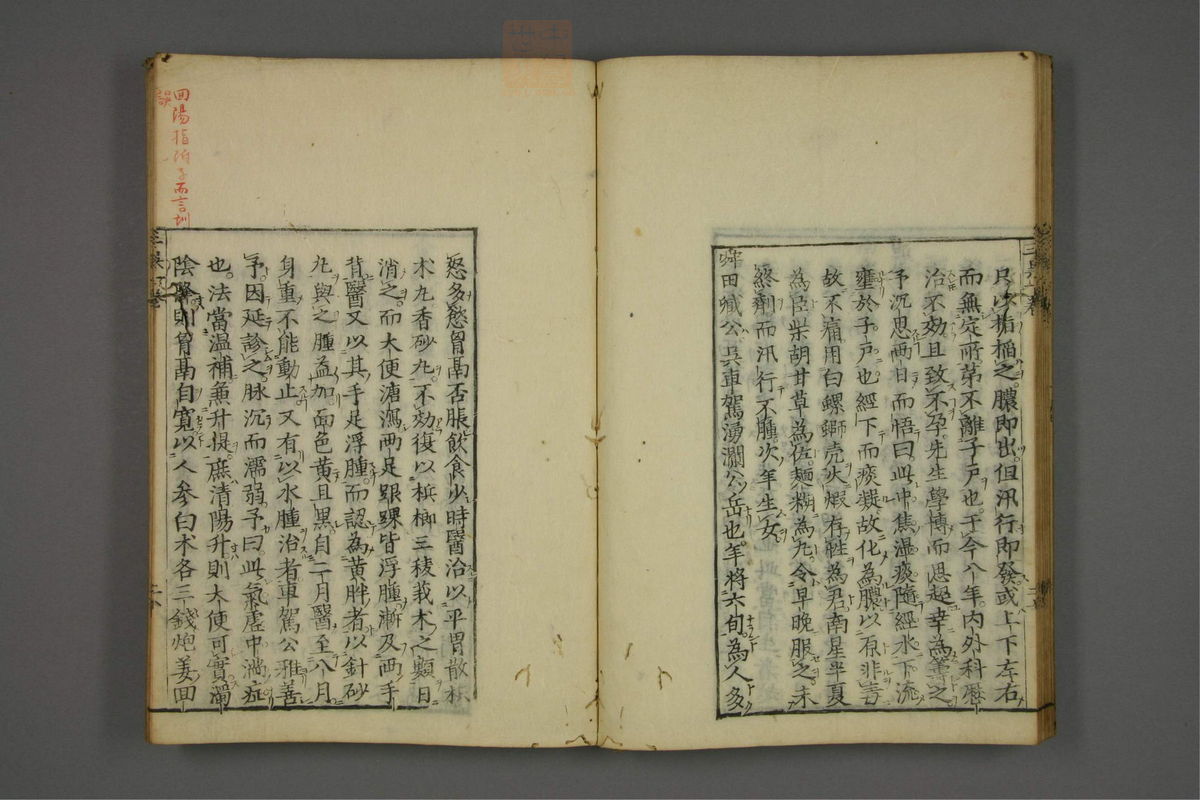 尺以楯稻之膿即出但汛行即發或上下左右
而無定所第不離子戶也于今八年內外科歷
治不効且致不孕先生學博而思超幸為籌之
予沉思兩日而悟曰此中焦濕痰隨經水下流
壅於子戶也經下而痰凝故化為膿以原非毒
故不痛用白螺螄壳火煆存牲為君南星半夏
為臣柴胡甘草為佐麵糊為丸令早晚服之未
終劑而汛行不腫次年生女
臧公吳車駕湧瀾公岳也年將六旬為人多
怒多慾胷鬲否脹飲食少時醫治以平胃散枳
术丸香砂丸不効復以檳榔三稜莪术之類日
消之而大便溏瀉兩足跟踝皆浮腫漸及兩手
背醫又以其手足浮腫而認為黃胖者以針砂
丸與之腫益加面色黃且黑自二月醫至八月
身重不能動止又有以水腫治者車駕公雅善
予因延診之脉沉而濡弱予曰此氣虛中滿症
也法當溫補兼升提庶清陽升則大便可實濁
陰降則胷鬲自寬以人參白术各三錢炮姜回